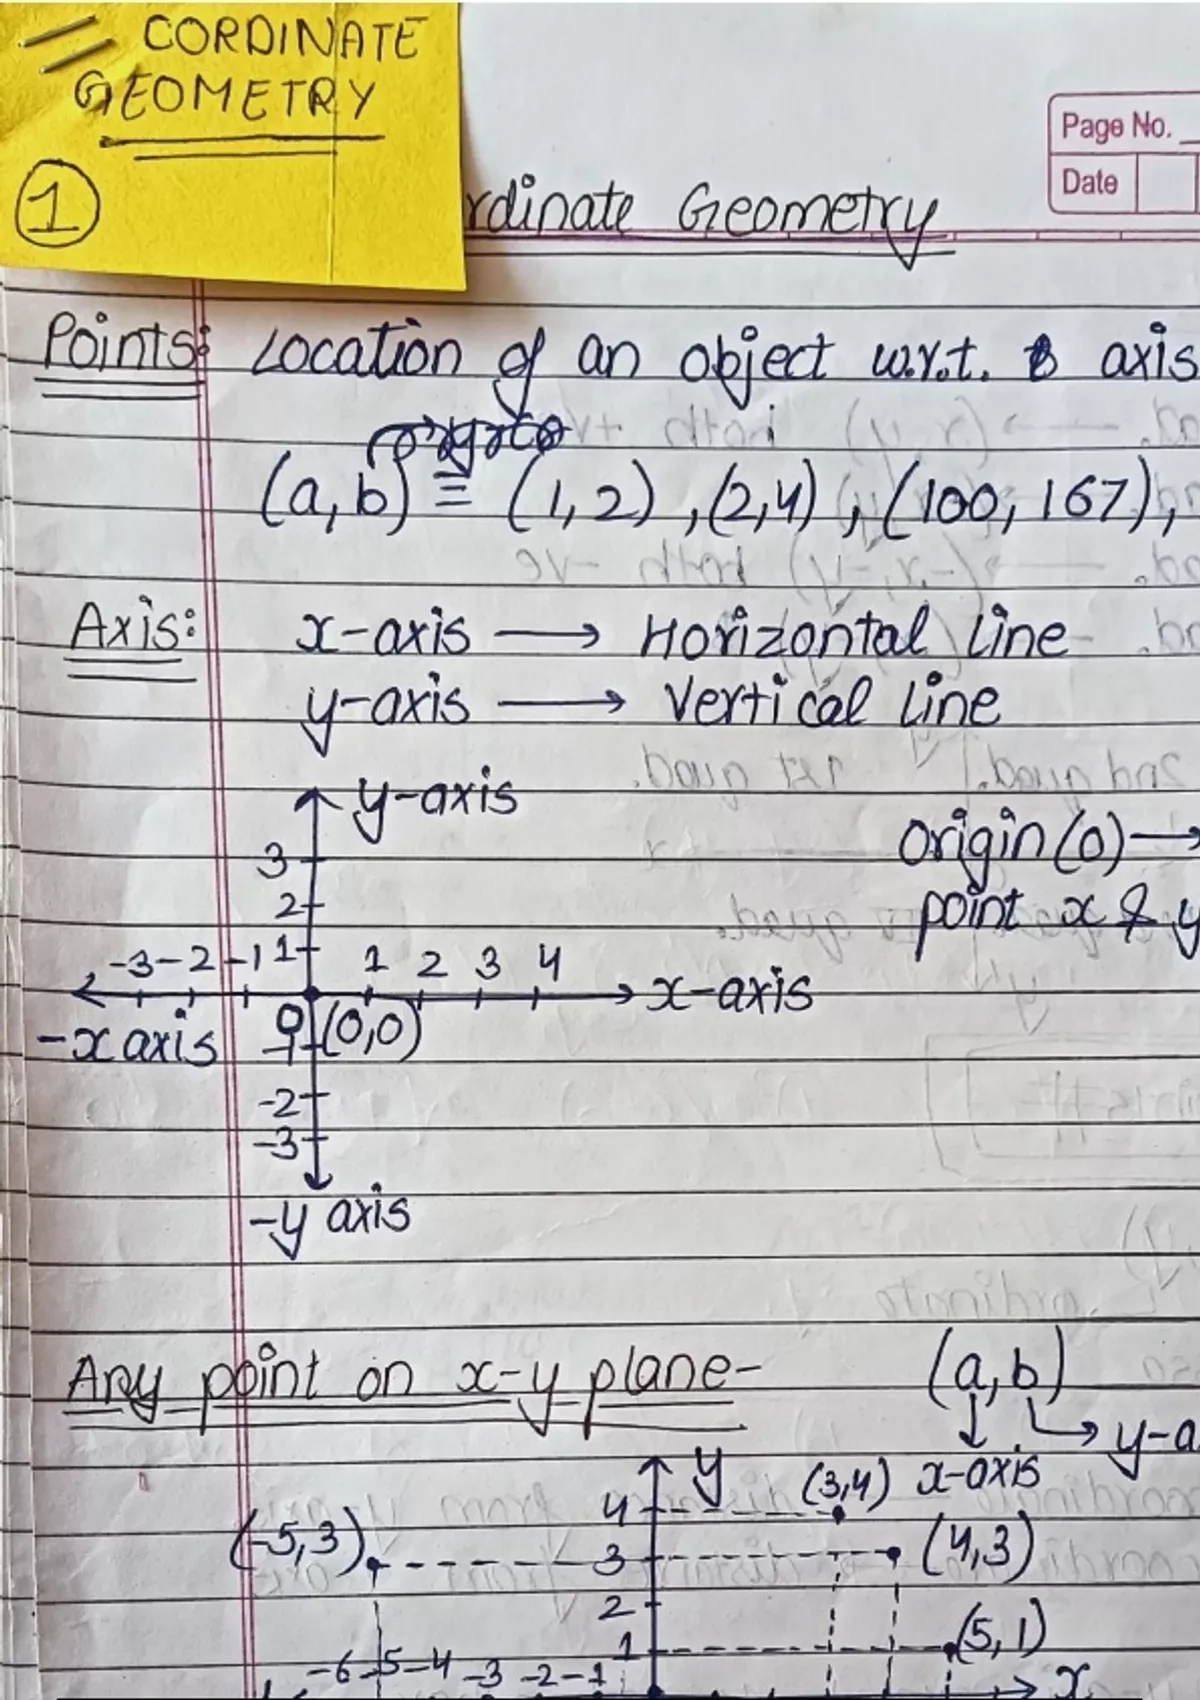 CORDINATE
GEOMETRY
1
Page No.
Date
rdinate Geometry
Points: Location of an object w.r.t. axis
(a,b) ≡ (1,2), (2,4), (100, 167),
Axis: x-axis → Horizontal line
y-axis → Vertical line
y-axis
origin (0) →
point x & y
3
2
1
-3 -2 -1 1 2 3 4
x-axis
-x axis
0 (0,0)
-1
-2
-3
-y axis
Any point on x-y plane-
(a,b)
x-axis → y-a
y
(3,4)
4
(-5,3)
3
(4,3)
2
1
(5,1)
-6 -5 -4 -3 -2 -1
x